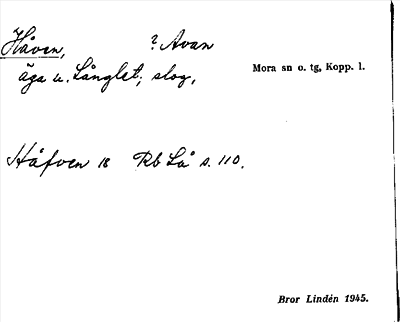 Håven, ? Avan
äga u. Långlet; slog. Mora sn o. tg, Kopp. l.
Håfven 18 Rb Lå s. 110.
Bror Lindén 1945.